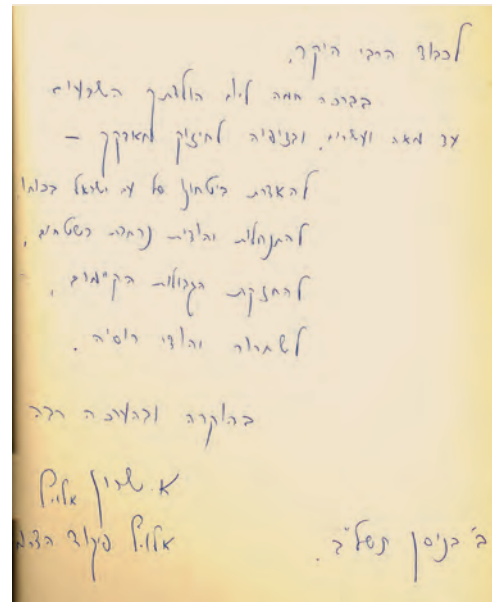 לכבוד הרבי היקר,
בברכה חמה ליום הולדתך השבעים
עד מאה ועשרים, ובציפיה לחיזוק למאבקך –
להאדרת ביטחון של עם ישראל בכוחו,
להתנחלות יהודית נרחבת בשטחים,
להחזקת הגבולות הקיימים,
לשחרור יהודי רוסיה.
בהוקרה ובהערכה רבה
א. שרון אלוף
אלוף פיקוד הדרום
ב' בניסן תשל"ב.